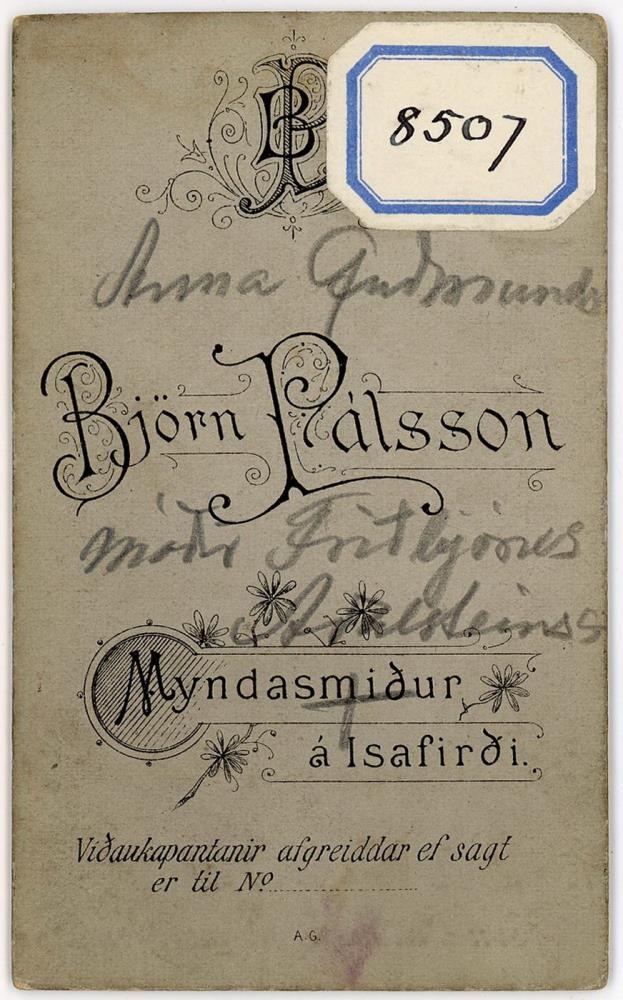 8507
Anna Guðmunds
Björn Pálsson
móðir Friðbjörns
Aðalsteinss
Myndasmiður
á Isafirði.
Viðaukapantanir afgreiddar ef sagt
er til Nº
A.G.